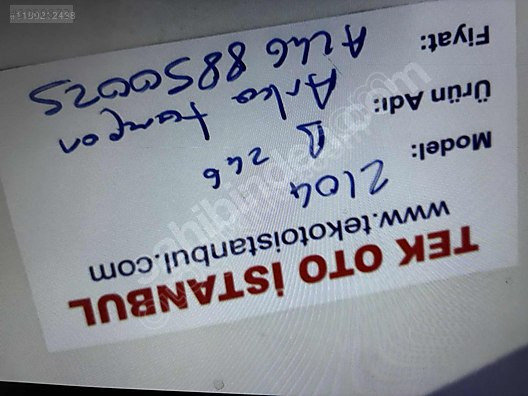 TEK OTO İSTANBUL
www.tekotoistanbul.com
2104
Model: B 246
Ürün Adı: Arka tampon
Fiyat: A246 8850025
sahibinden.com